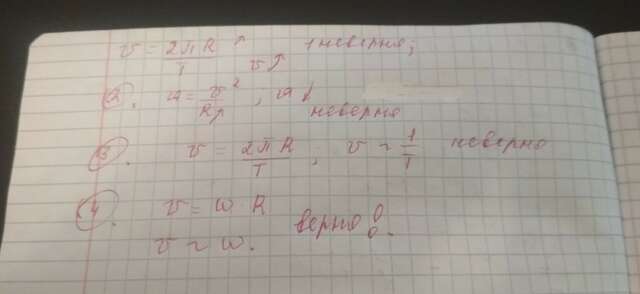 v = 2πR/T ↑ v↑ 1 неверно;
2. a = v²/R↑ ; a↓ неверно
3. v = 2πR/T ; v ~ 1/T неверно
4. v = ω R верно!
v ~ ω.